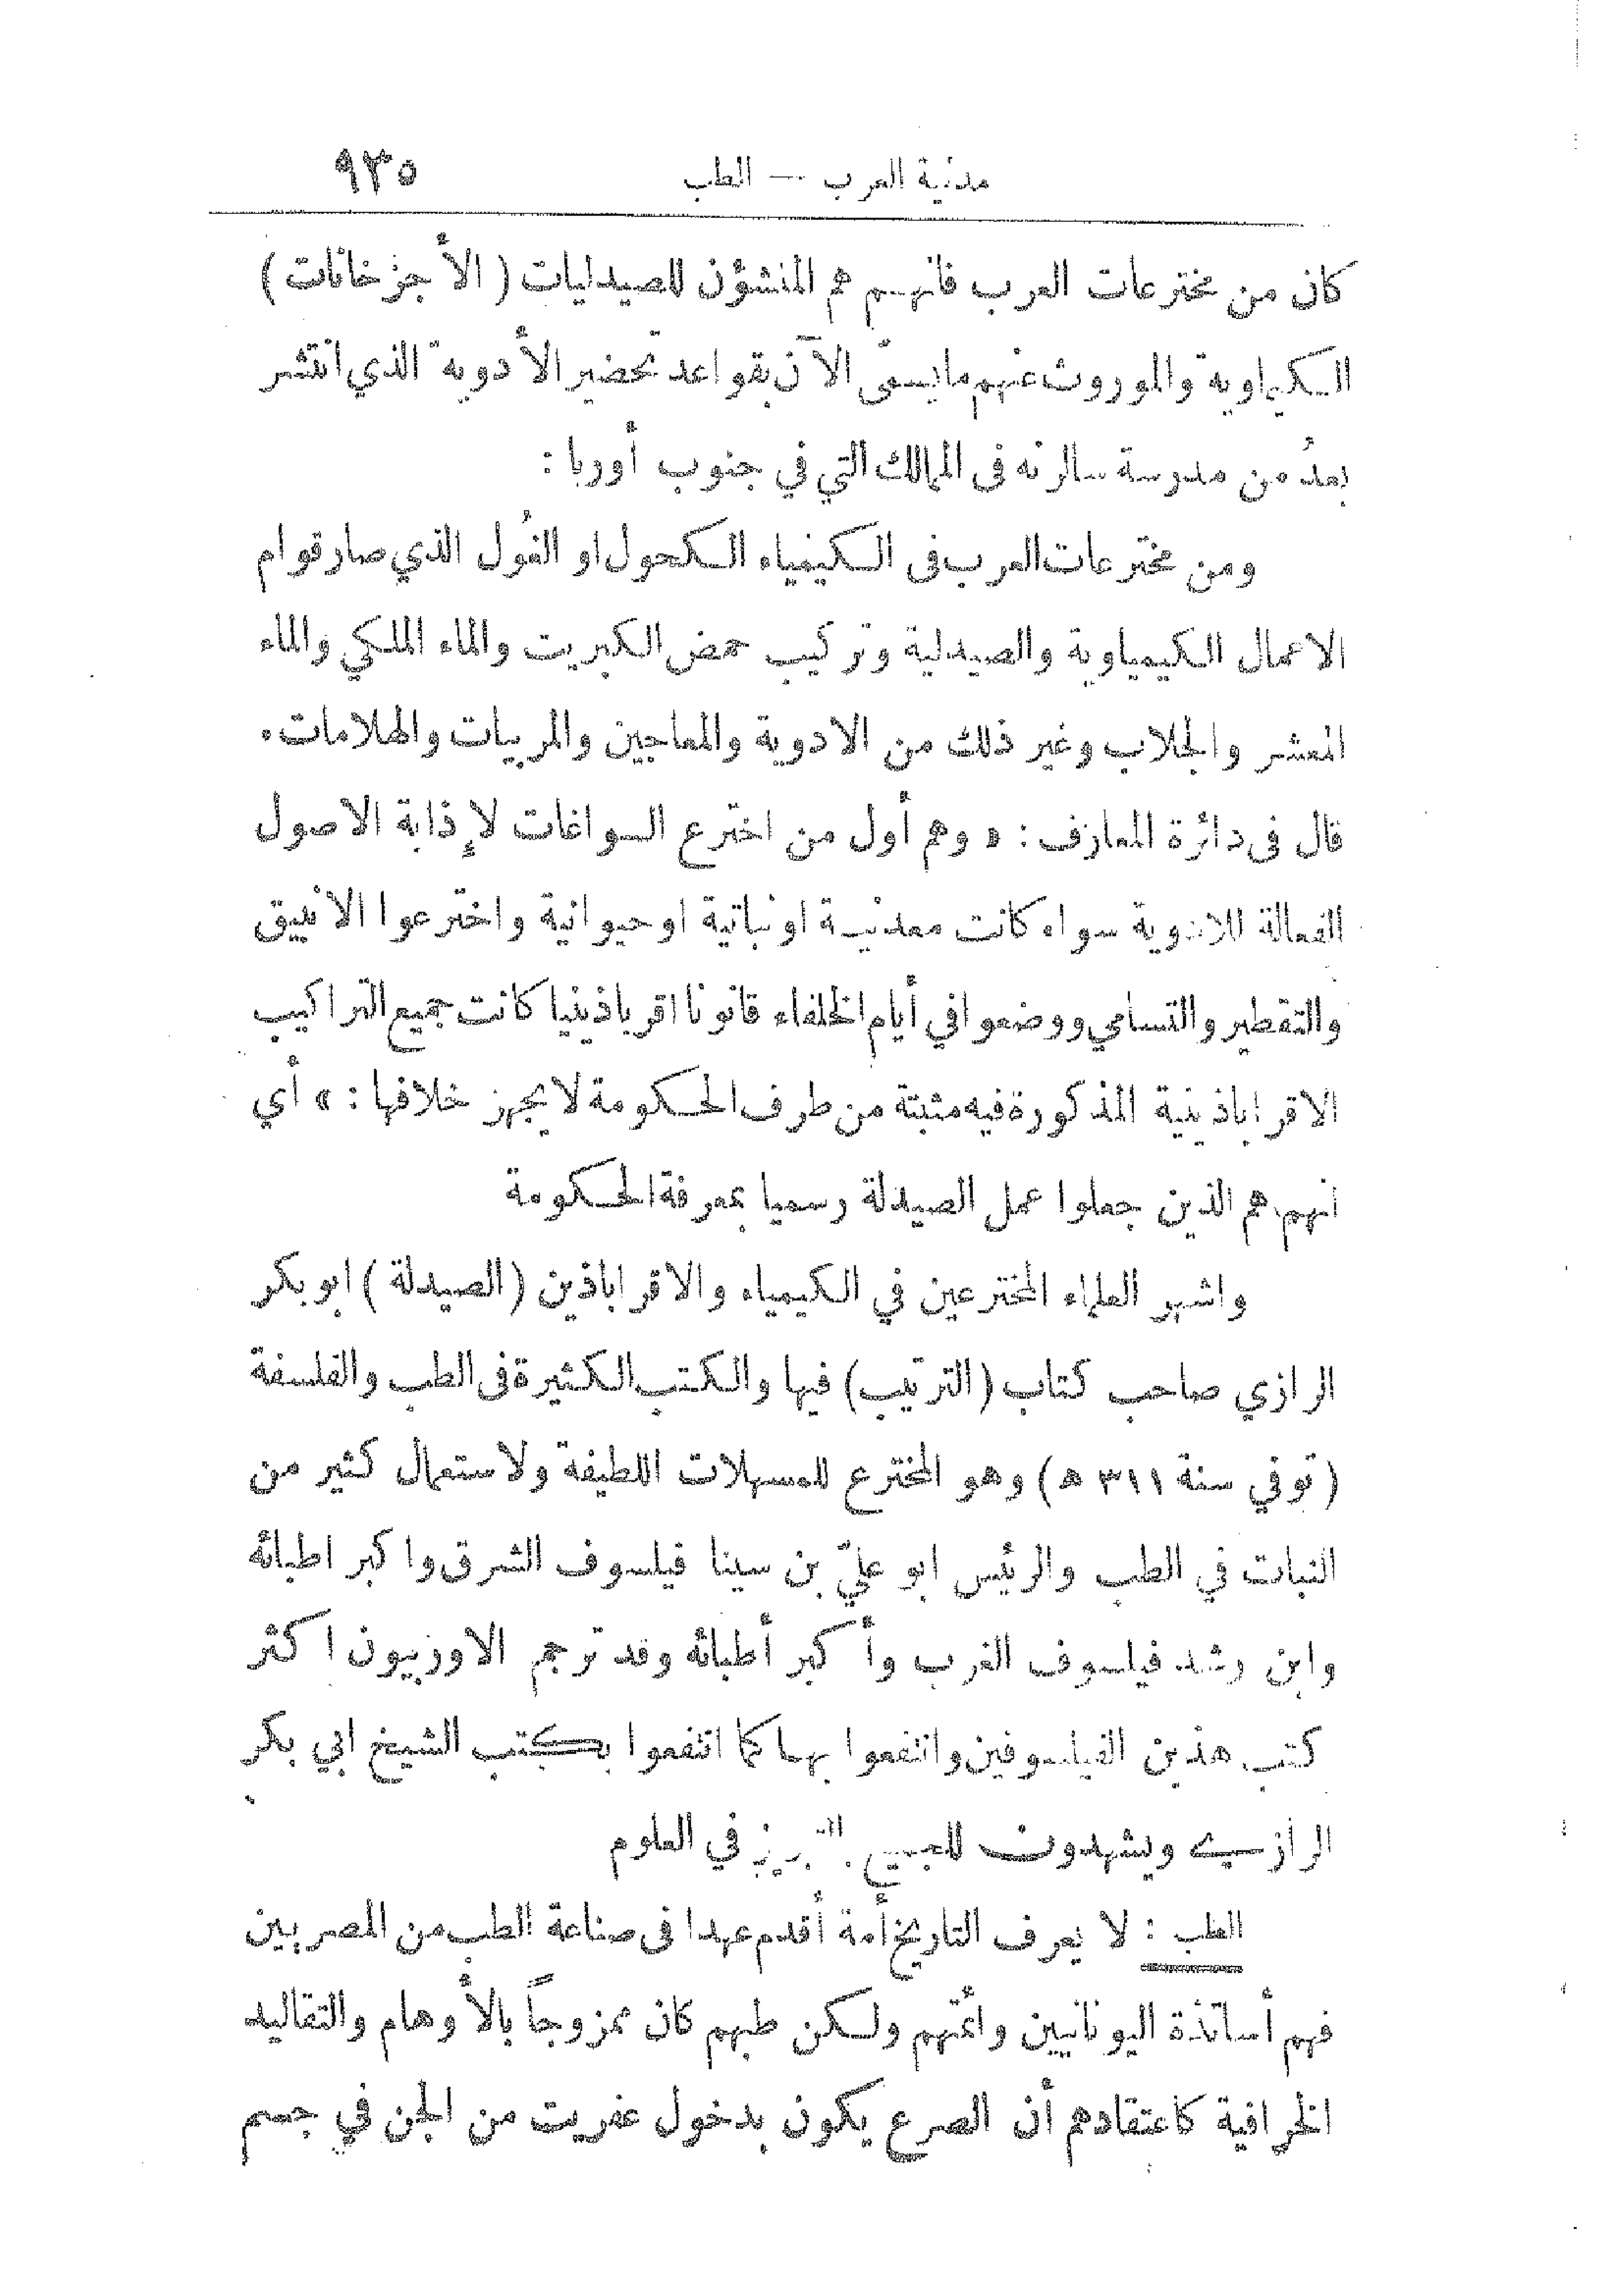 مدنية العرب — الطب ٩٣٥
كان من مخترعات العرب فانهم هم المنشؤن للصيدليات ( الأجزخانات )
الكيماوية والموروث عنهم ما يسمّى الآن بقواعد تحضير الأدوية الذي انتشر
بعدُ من مدرسة سالرنه فى الممالك التي في جنوب أوربا :
ومن مخترعات العرب فى الكيمياء الكحول او الغُول الذي صار قوام
الاعمال الكيمياوية والصيدلية وتركيب حمض الكبريت والماء الملكي والماء
المعشر والجلاب وغير ذلك من الادوية والمعاجين والمربيات والهلامات.
قال فى دائرة المعارف : « وهم أول من اخترع السواغات لإذابة الاصول
الفعالة للادوية سواء كانت معدنية او نباتية او حيوانية واخترعوا الانبيق
والتقطير والتسامي ووضعوا في أيام الخلفاء قانونا اقرباذينيا كانت جميع التراكيب
الاقراباذينية المذكورة فيه مثبتة من طرف الحكومة لا يجهز خلافها : » أي
انهم هم الذين جعلوا عمل الصيدلة رسميا بمعرفة الحكومة
واشهر العلماء المخترعين في الكيمياء والاقراباذين (الصيدلة ) ابو بكر
الرازي صاحب كتاب (الترتيب) فيها والكتب الكثيرة فى الطب والفلسفة
( توفي سنة ٣١١ ه ) وهو المخترع للمسهلات اللطيفة ولاستعمال كثير من
النبات في الطب والرئيس ابو عليّ بن سينا فيلسوف الشرق واكبر اطبائه
وابن رشد فيلسوف الغرب وأكبر أطبائه وقد ترجم الاوربيون اكثر
كتب هذين الفيلسوفين وانتفعوا بها كما انتفعوا بكتب الشيخ ابي بكر
الرازي ويشهدون للجميع بالتبريز في العلوم
الطب : لا يعرف التاريخ أمة أقدم عهدا فى صناعة الطب من المصريين
فهم أساتذة اليونانيين وائمتهم ولكن طبهم كان ممزوجاً بالأوهام والتقاليد
الخرافية كاعتقادهم أن الصرع يكون بدخول عفريت من الجن في جسم